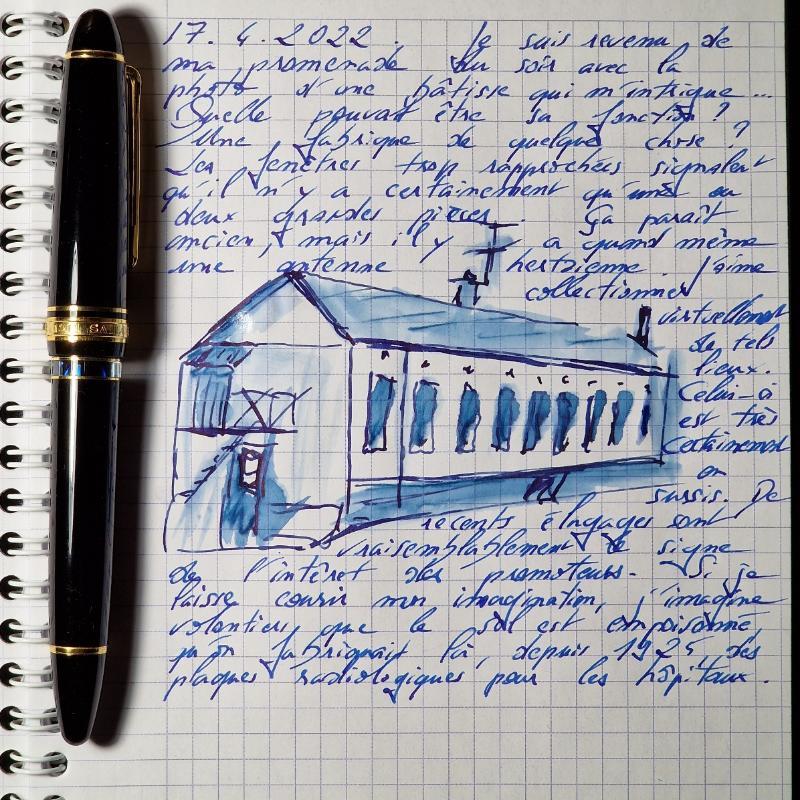 17. 4. 2022. Je suis revenu de
ma promenade du soir avec la
photo d'une bâtisse qui m'intrigue ...
Quelle pouvait être sa fonction ?
Une fabrique de quelque chose ?
Les fenêtres trop rapprochées signalent
qu'il n'y a certainement qu'une ou
deux grandes pièces. Ça paraît
ancien, mais il y a quand même
une antenne hertzienne. J'aime
collectionner
virtuellement
de tels
lieux.
Celui-ci
est très
certainement
en
sursis. De
récents élagages sont
vraisemblablement le signe
de l'intérêt des promoteurs. Si je
laisse courir mon imagination, j'imagine
volontiers que le sol est empoisonné,
qu'on fabriquait là, depuis 1925, des
plaques radiologiques pour les hôpitaux.